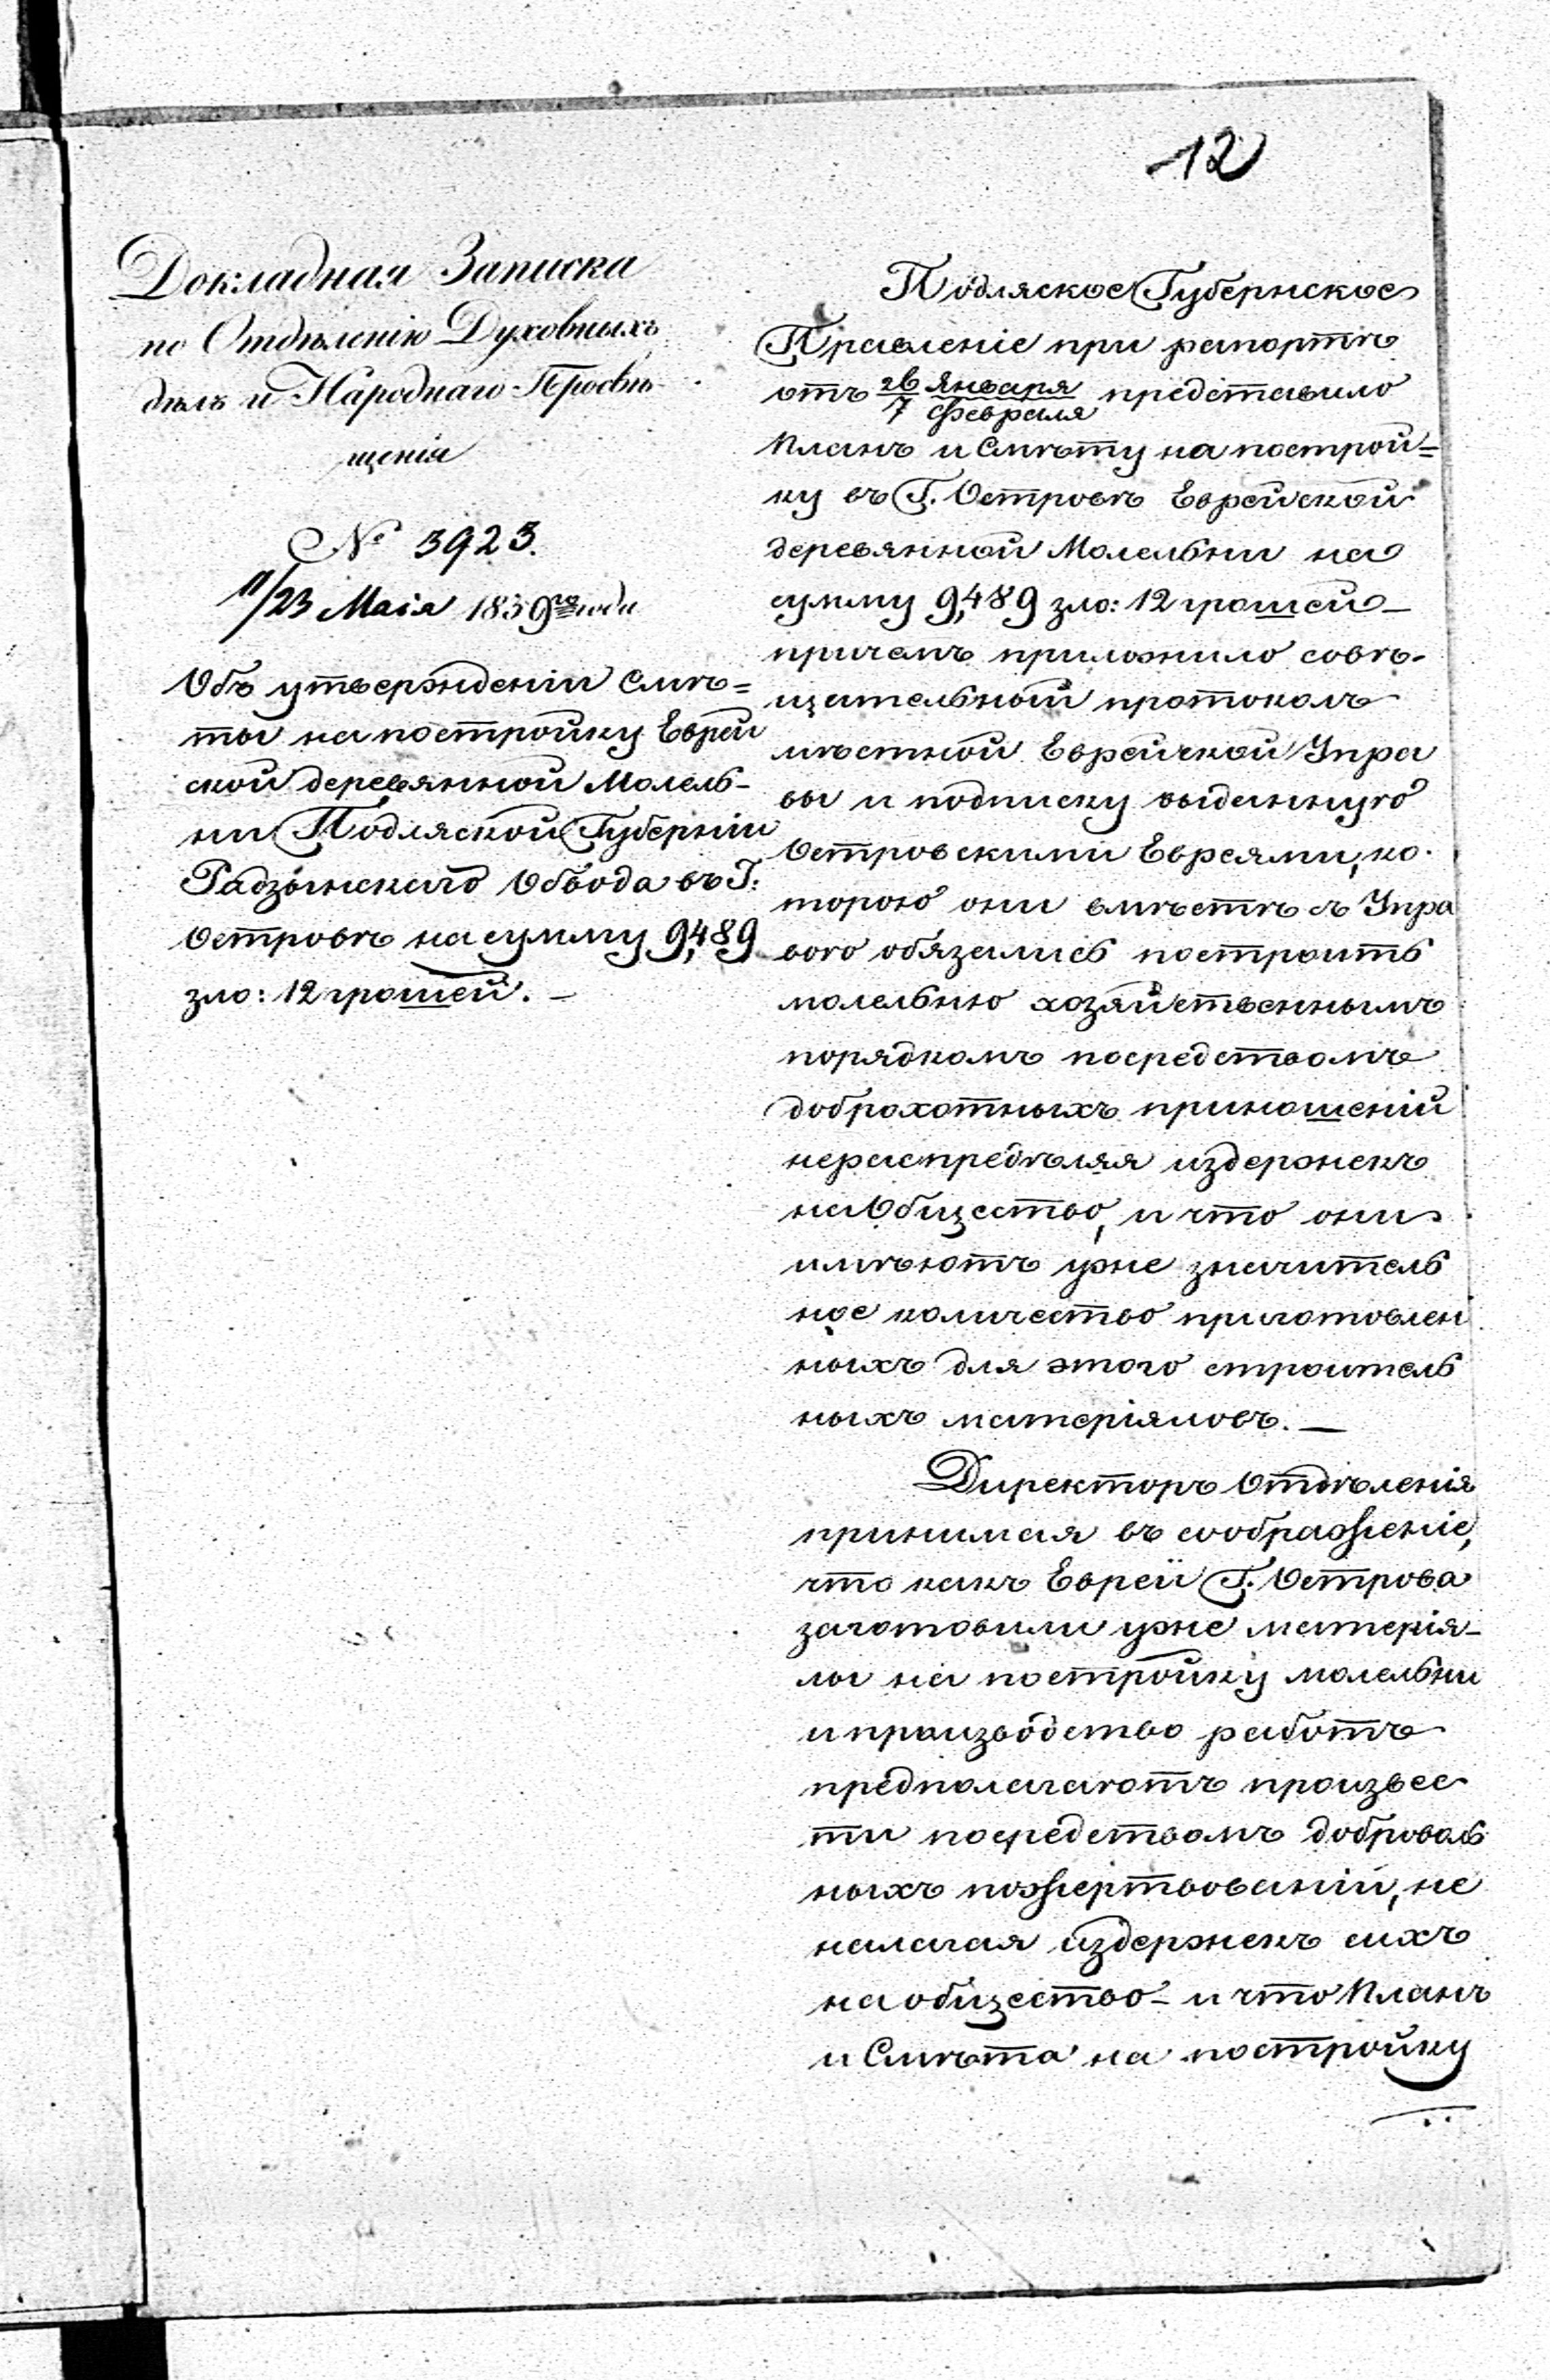 12
Докладная Записка
по Отдѣленію Духовныхъ
дѣлъ и Народнаго Просвѣ-
щенія
№ 3923.
11/23 Маія 1839го года
Объ утвержденіи Смѣ=
ты на постройку Еврей
ской деревянной Молель-
ни Подляской Губерніи
Радзынскаго Обвода въ Г:
Островѣ на сумму 9,489
зло: 12 грошей. —
Подляское Губернское
Правленіе при рапортѣ
отъ 26 Января / 7 Февраля представило
Планъ и Смѣту на построй=
ку въ Г. Островѣ Еврейской
деревянной Молельни на
сумму 9,489 зло: 12 грошей —
причемъ приложило совѣ-
щательный протоколъ
мѣстной Еврейской Упра
вы и подписку выданную
Островскими Евреями, ко-
торою они вмѣстѣ съ Упра
вою обязались построить
молельню хозяйственнымъ
порядкомъ посредствомъ
доброхотныхъ приношеній
нераспредѣляя издержекъ
на Общество, и что они
имѣютъ уже значитель
ное количество приготовлен
ныхъ для этого строитель
ныхъ матеріяловъ. —
Директоръ Отдѣленія
принимая въ соображеніе,
что какъ Евреи Г. Острова
заготовили уже матерія-
лы на постройку молельни
и производство работъ
предполагаютъ произвес
ти посредствомъ доброволь
ныхъ пожертвованій, не
налагая издержекъ сихъ
на общество — и что Планъ
и Смѣта на постройку